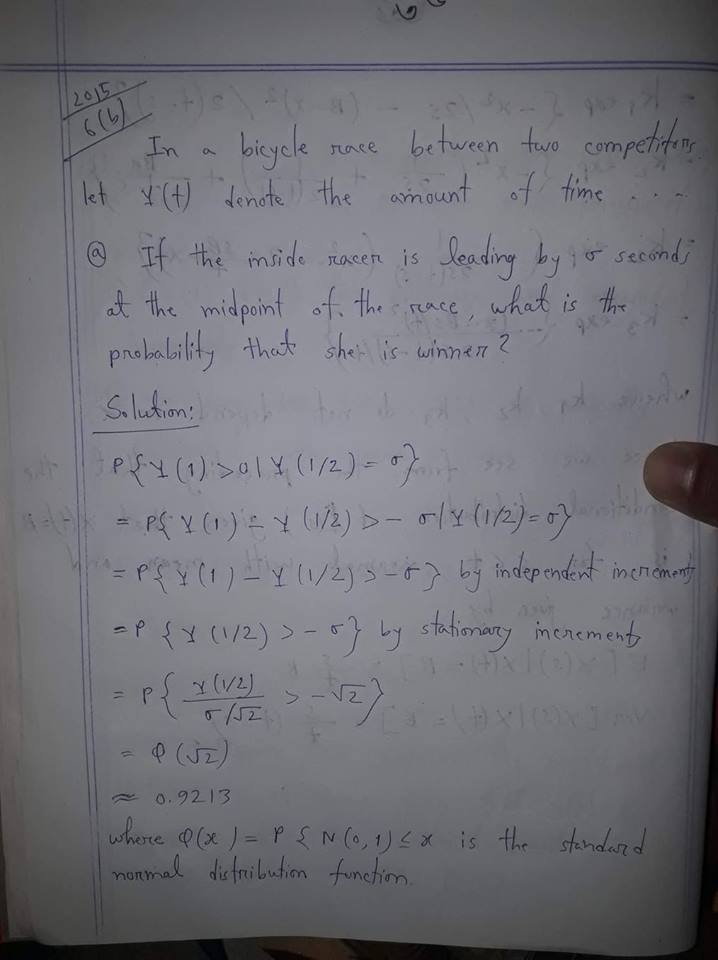 2015
6(b)
In a bicycle race between two competitors
let Y(t) denote the amount of time ....
ⓐ If the inside racer is leading by σ seconds
at the midpoint of the race, what is the
probability that she is winner?
Solution:
P{Y(1) > 0 | Y(1/2) = σ}
= P{Y(1) - Y(1/2) > - σ | Y(1/2) = σ}
= P{Y(1) - Y(1/2) > - σ} by independent increments
= P {Y(1/2) > - σ} by stationary increments
= P{ Y(1/2) / σ/√2 > - √2 }
= Φ(√2)
≈ 0.9213
where Φ(x) = P { N(0,1) ≤ x is the standard
normal distribution function.